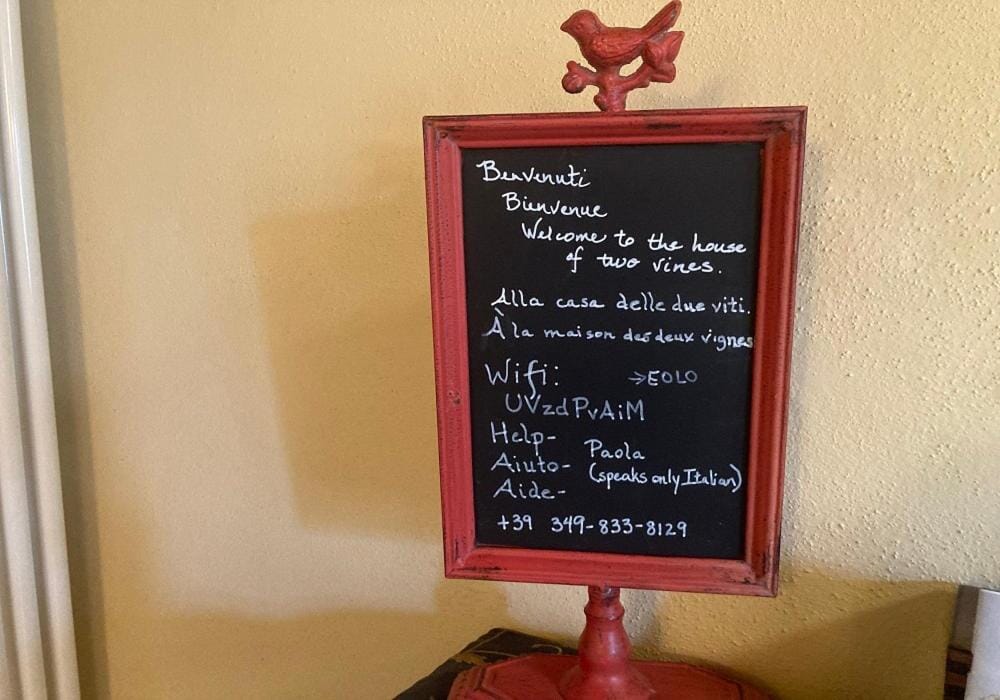 Benvenuti
Bienvenue
Welcome to the house
of two vines.
Alla casa delle due viti.
À la maison des deux vignes
Wifi: →EOLO
UVzdPvAiM
Help-
Paola
Aiuto-
(speaks only Italian)
Aide-
+39 349-833-8129